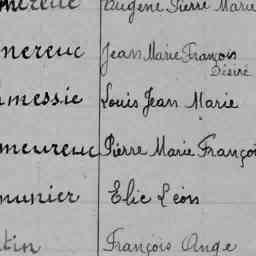 mereuc Eugène Pierre Marie
mereuc Jean Marie François
Désiré
messie Louis Jean Marie
meureuc Pierre Marie Françoi
munier Elie Léon
tin François Ange